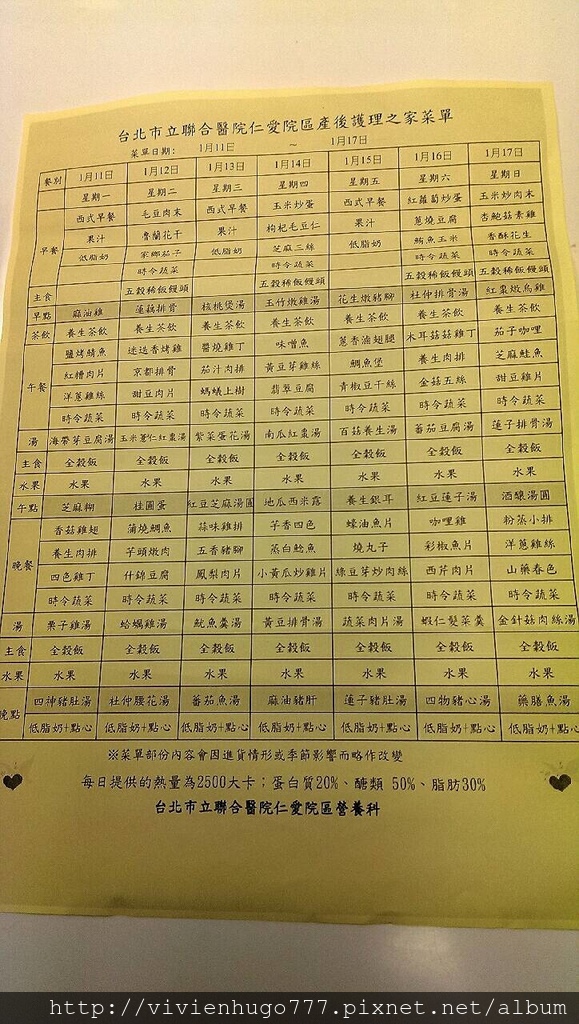 台北市立聯合醫院仁愛院區產後護理之家菜單
菜單日期: 1月11日 ~ 1月17日
餐別 1月11日 1月12日 1月13日 1月14日 1月15日 1月16日 1月17日
星期一 星期二 星期三 星期四 星期五 星期六 星期日
早餐 西式早餐 毛豆肉末 西式早餐 玉米炒蛋 西式早餐 紅蘿蔔炒蛋 玉米炒肉末
果汁 魯蘭花干 果汁 枸杞毛豆仁 果汁 蔥燒豆腐 杏鮑菇素雞
低脂奶 家鄉茄子 低脂奶 芝麻三絲 低脂奶 鮪魚玉米 香酥花生
時令蔬菜 時令蔬菜 時令蔬菜 時令蔬菜
主食 五穀稀飯饅頭 五穀稀飯饅頭 五穀稀飯饅頭 五穀稀飯饅頭
早點 麻油雞 蓮藕排骨 核桃堡湯 玉竹燉雞湯 花生燉豬腳 杜仲排骨湯 紅棗燉烏雞
茶飲 養生茶飲 養生茶飲 養生茶飲 養生茶飲 養生茶飲 養生茶飲 養生茶飲
午餐 鹽烤鯖魚 迷迭香烤雞 醬燒雞丁 味噌魚 蔥香滷翅腿 木耳菇菇雞丁 茄子咖哩
紅糟肉片 京都排骨 茄汁肉排 黃豆芽雞絲 鯛魚堡 養生肉排 芝麻鮭魚
洋蔥雞絲 甜豆肉片 螞蟻上樹 翡翠豆腐 青椒豆干絲 金菇五絲 甜豆雞片
時令蔬菜 時令蔬菜 時令蔬菜 時令蔬菜 時令蔬菜 時令蔬菜 時令蔬菜
湯 海帶芽豆腐湯 玉米薏仁紅棗湯 紫菜蛋花湯 南瓜紅棗湯 百菇養生湯 蕃茄豆腐湯 蓮子排骨湯
主食 全穀飯 全穀飯 全穀飯 全穀飯 全穀飯 全穀飯 全穀飯
水果 水果 水果 水果 水果 水果 水果 水果
午點 芝麻糊 桂圓蛋 紅豆芝麻湯圓 地瓜西米露 養生銀耳 紅豆蓮子湯 酒釀湯圓
晚餐 香菇雞翅 蒲燒鯛魚 蒜味雞排 芋香四色 蠔油魚片 咖哩雞 粉蒸小排
養生肉排 芋頭燉肉 五香豬腳 蒸白鯰魚 燒丸子 彩椒魚片 洋蔥雞絲
四色雞丁 什錦豆腐 鳳梨肉片 小黃瓜炒雞片 綠豆芽炒肉絲 西芹肉片 山藥春色
時令蔬菜 時令蔬菜 時令蔬菜 時令蔬菜 時令蔬菜 時令蔬菜 時令蔬菜
湯 栗子雞湯 蛤蠣雞湯 魷魚羹湯 黃豆排骨湯 蔬菜肉片湯 蝦仁髮菜羹 金針菇肉絲湯
主食 全穀飯 全穀飯 全穀飯 全穀飯 全穀飯 全穀飯 全穀飯
水果 水果 水果 水果 水果 水果 水果 水果
晚點 四神豬肚湯 杜仲腰花湯 蕃茄魚湯 麻油豬肝 蓮子豬肚湯 四物豬心湯 藥膳魚湯
低脂奶+點心 低脂奶+點心 低脂奶+點心 低脂奶+點心 低脂奶+點心 低脂奶+點心 低脂奶+點心
※菜單部份內容會因進貨情形或季節影響而略作改變
每日提供的熱量為2500大卡；蛋白質20%、醣類 50%、脂肪30%
台北市立聯合醫院仁愛院區營養科
http://vivienhugo777.pixnet.net/album